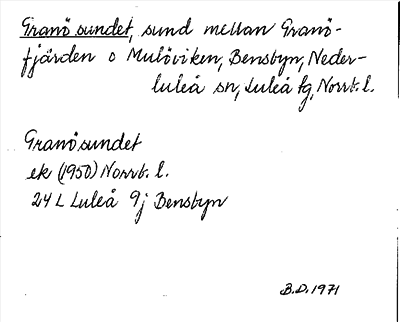 Granö sundet, sund mellan Granö-
fjärden o Mulöviken, Bensbyn, Neder-
luleå sn, Luleå tg, Norrb. l.
Granösundet
ek (1950) Norrb. l.
24 L Luleå 9j Bensbyn
B.D. 1971